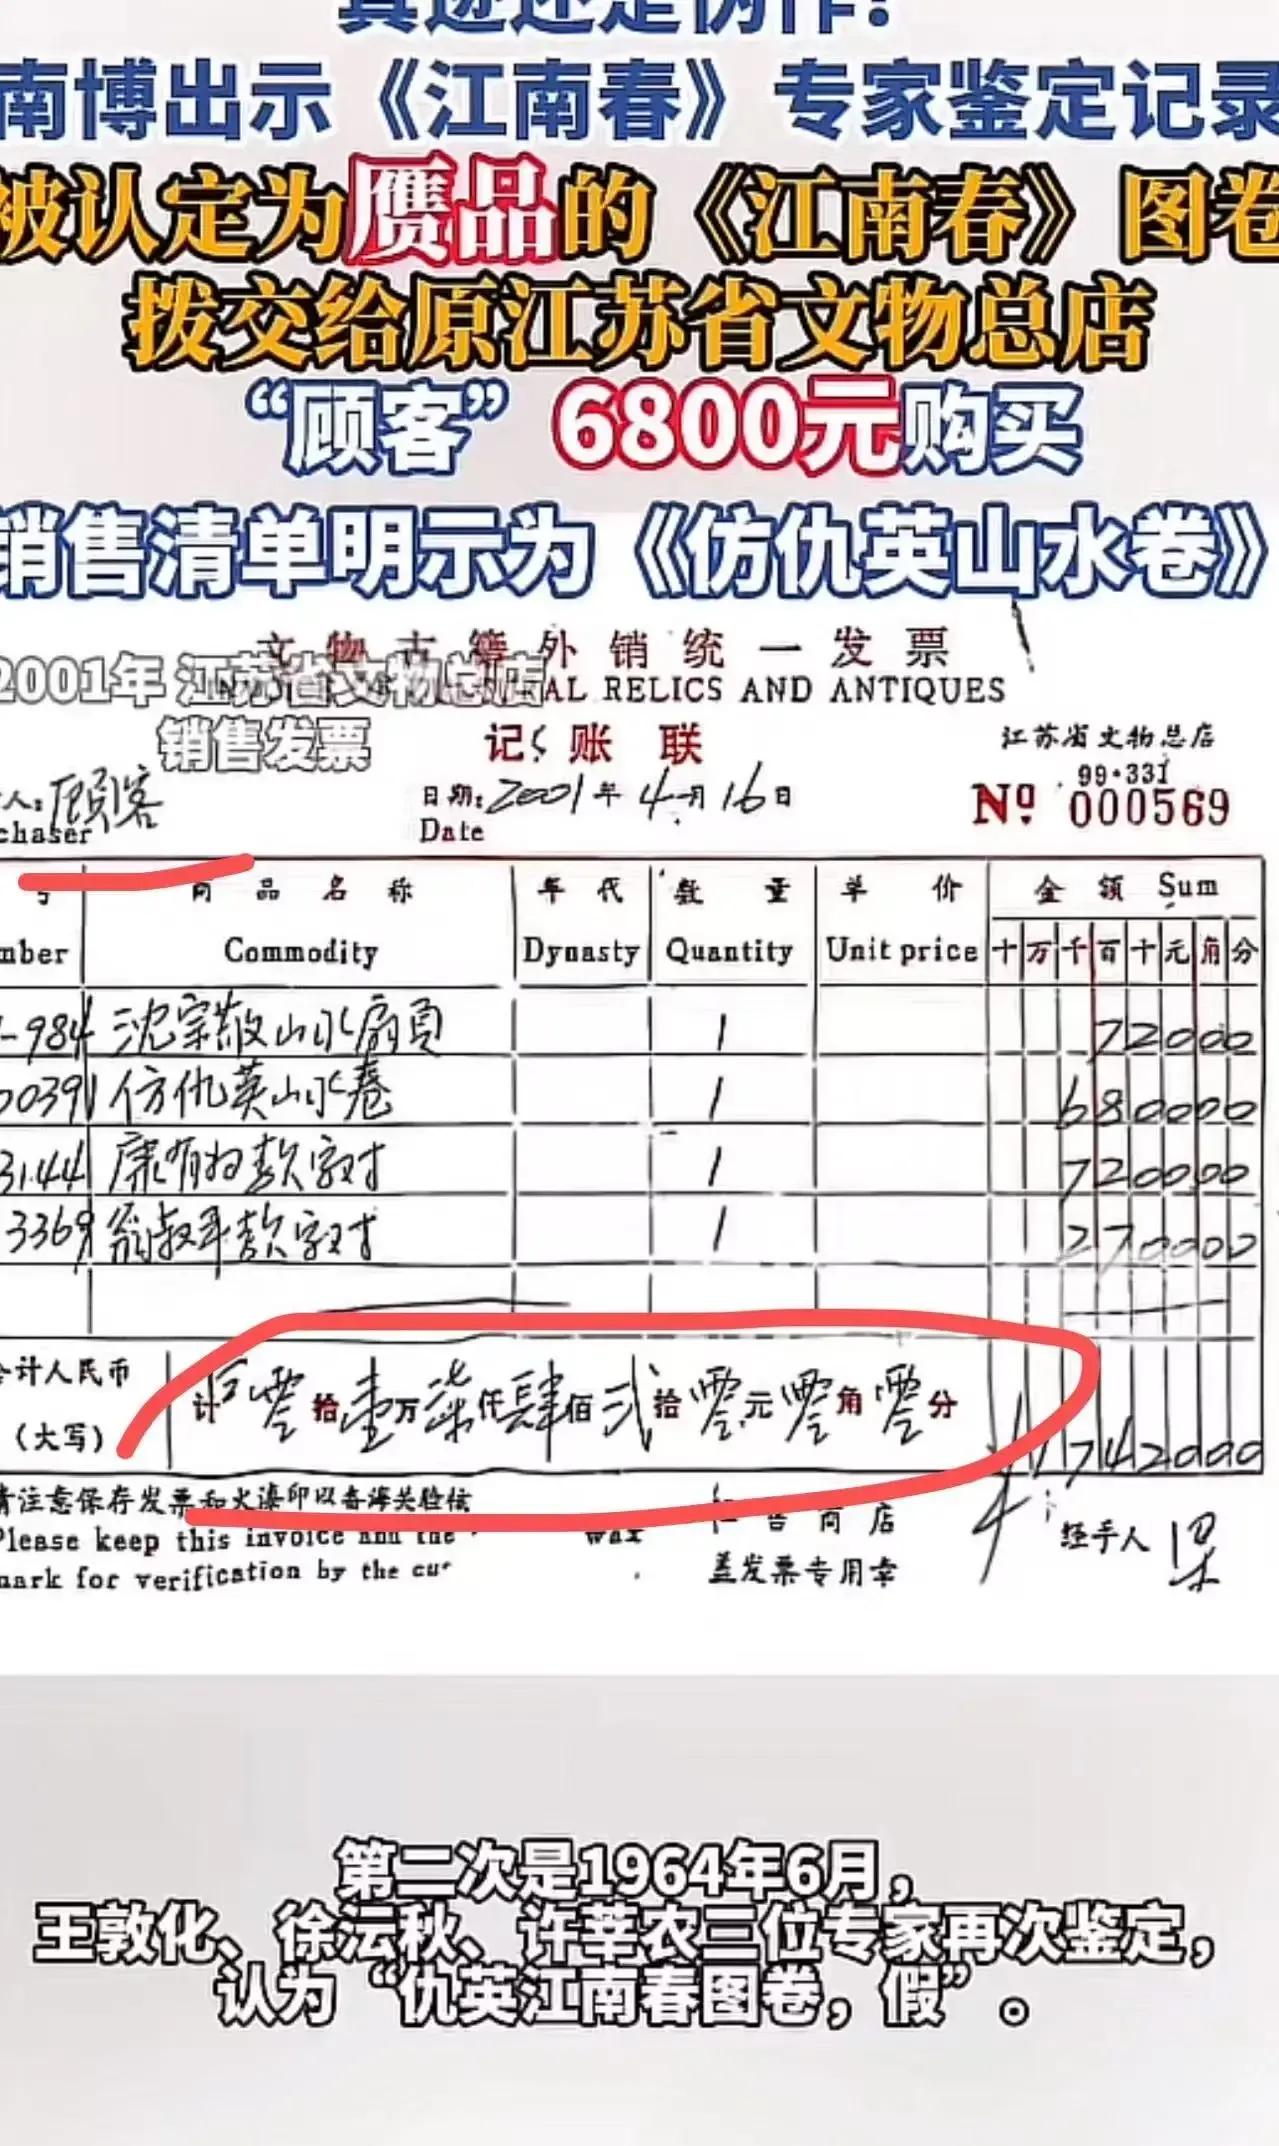 真迹还是伪作？
南博出示《江南春》专家鉴定记录
被认定为赝品的《江南春》图卷
拨交给原江苏省文物总店
“顾客”6800元购买
销售清单明示为《仿仇英山水卷》
外销统一发票
RELICS AND ANTIQUES
2001年 江苏省文物总店
销售发票
记账联
江苏省文物总店
99·331
人：顾客
chaser
日期：2001年4月16日
Date
Nº 000569
号 商品名称 年代 数量 单价 金额 Sum
mber Commodity Dynasty Quantity Unit price 十万千百十元角分
-984 沈宗敬山水扇页 1 72000
00391 仿仇英山水卷 1 680000
3144 康有为款字对 1 720000
3369 翁叔平款字对 1 270000
合计人民币
（大写）
计零拾壹万柒仟肆佰贰拾零元零角零分 1742000
请注意保存发票和火漆印以备海关验放
Please keep this invoice and the wax
mark for verification by the cu
售商店
盖发票专用章
经手人
第二次是1964年6月，
王敦化、徐沄秋、许莘农三位专家再次鉴定，
认为“仇英江南春图卷，假”。